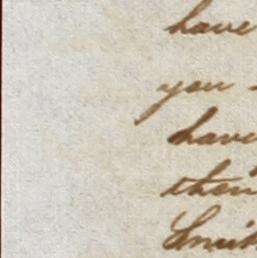 have
you -
have
then
Smith